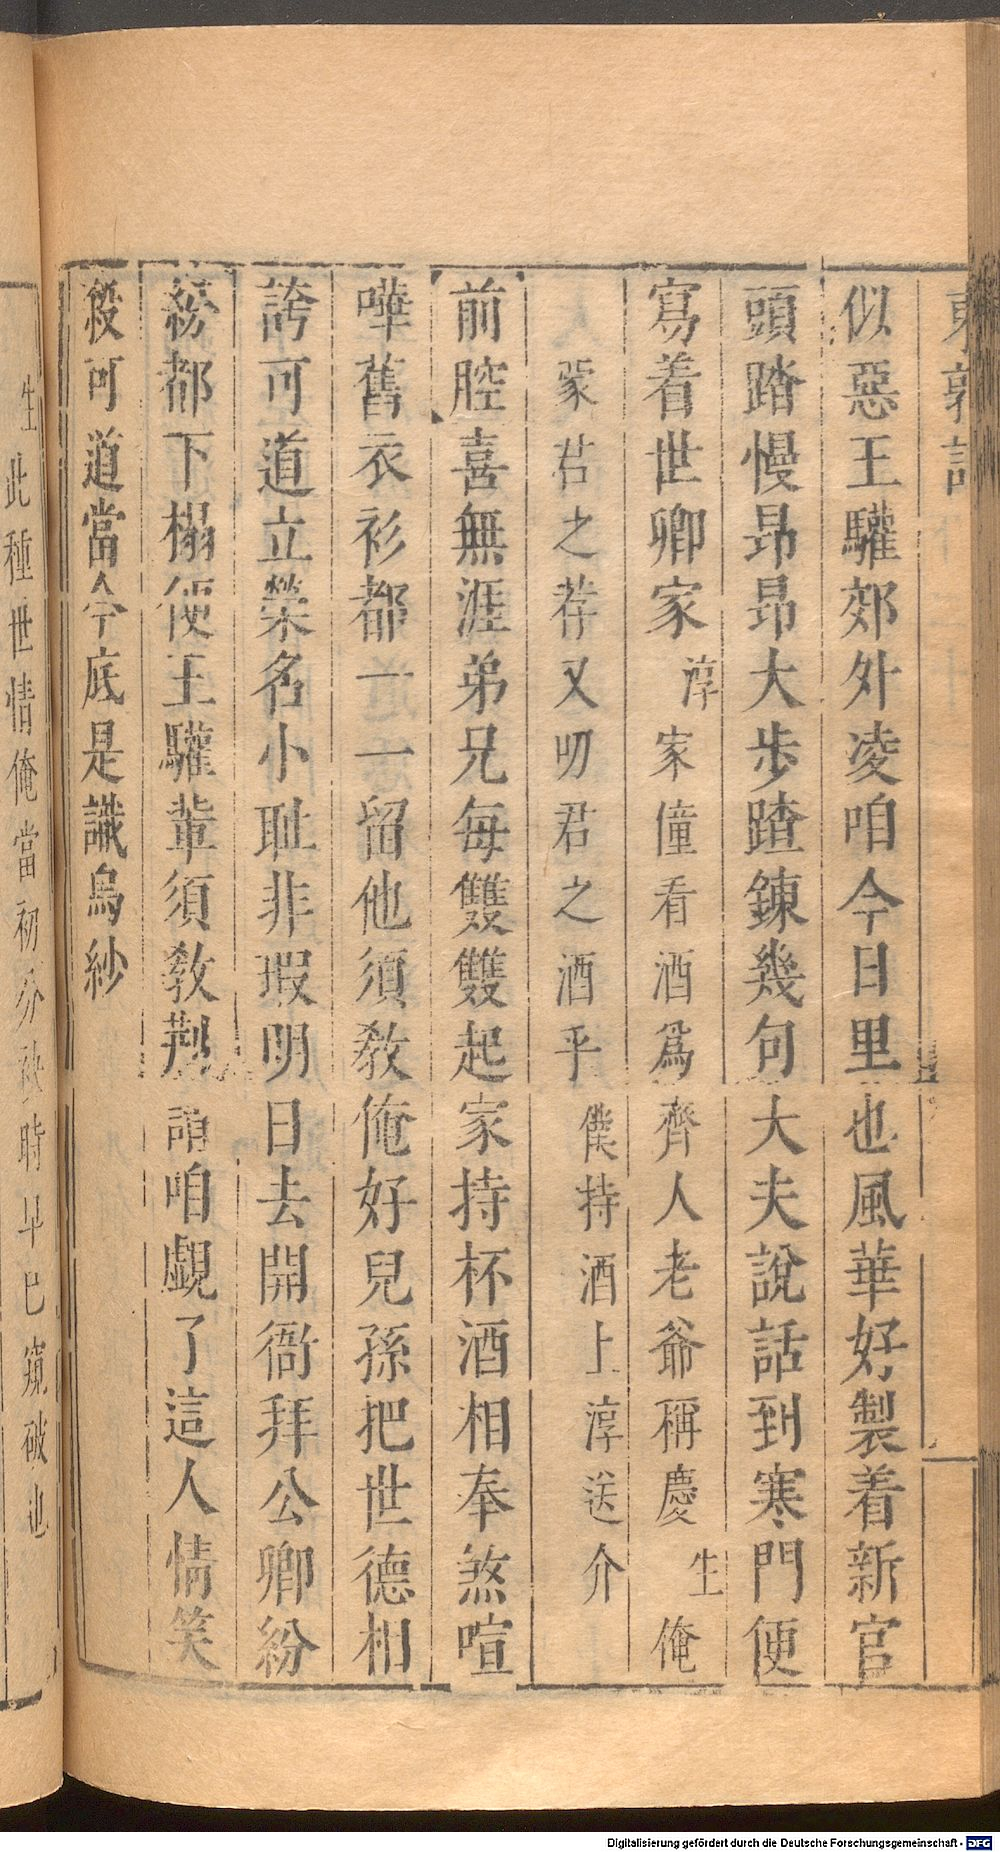 東郭記
似惡王驩郊外凌咱今日里也風華好製着新官
頭踏慢昻昻大步蹅鍊幾句大夫說話到寒門便
寫着世卿家淳家僮看酒爲齊人老爺稱慶生俺
蒙君之荐又叨君之酒乎僕持酒上淳送介
前腔喜無涯弟兄每雙雙起家持杯酒相奉煞喧
嘩舊衣衫都一一留他須敎俺好兒孫把世德相
誇可道立榮名小耻非瑕明日去開衙拜公卿紛
紛都下榻便王驩輩須敎荆咱覷了這人情笑
殺可道當今底是識烏紗
生此種世情俺當初分袂時早已窺破也
Digitalisierung gefördert durch die Deutsche Forschungsgemeinschaft - DFG